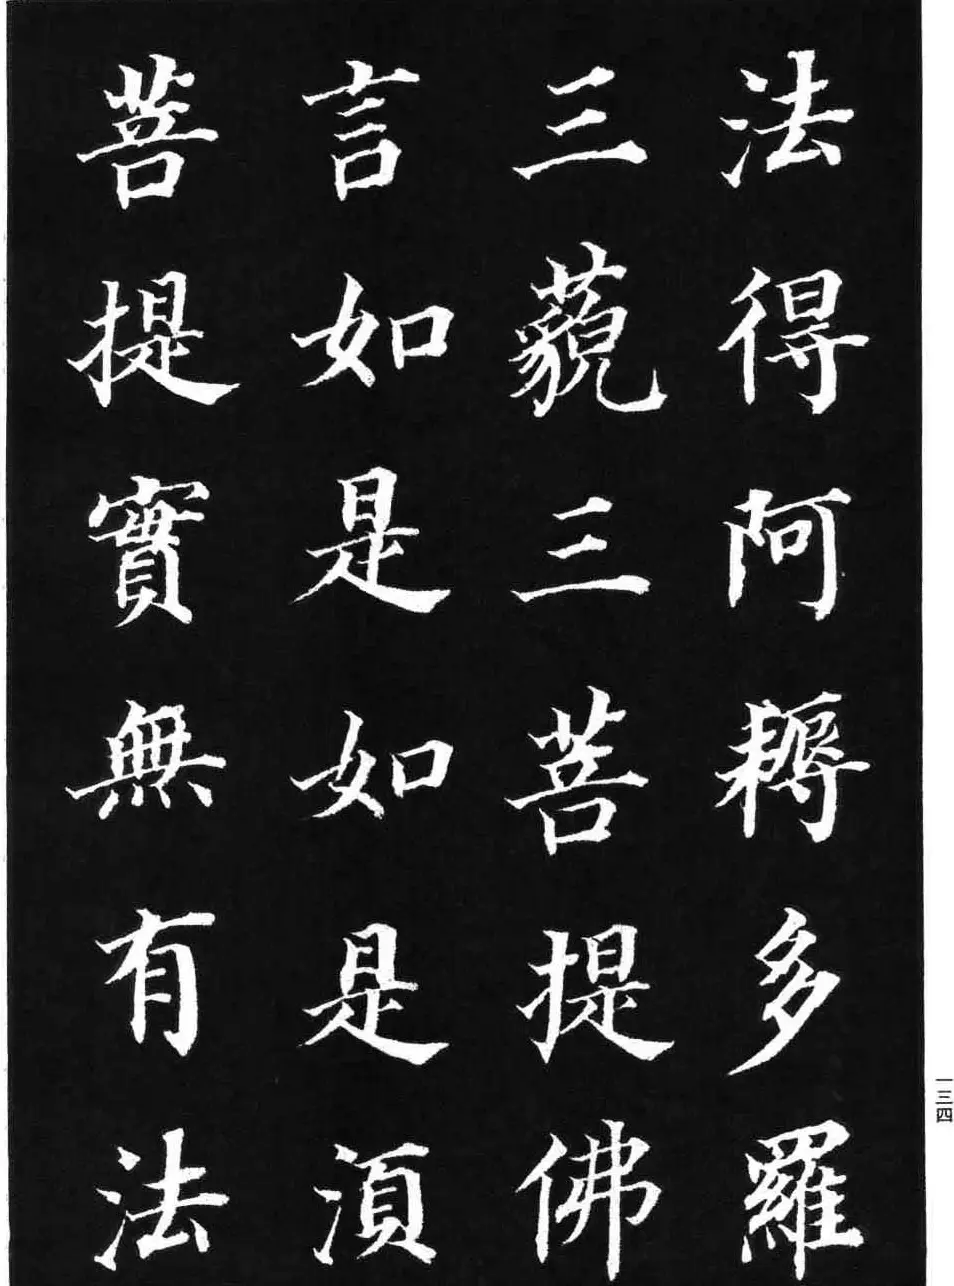 法得阿耨多羅
三藐三菩提佛
言如是如是湏
菩提實無有法
一三四